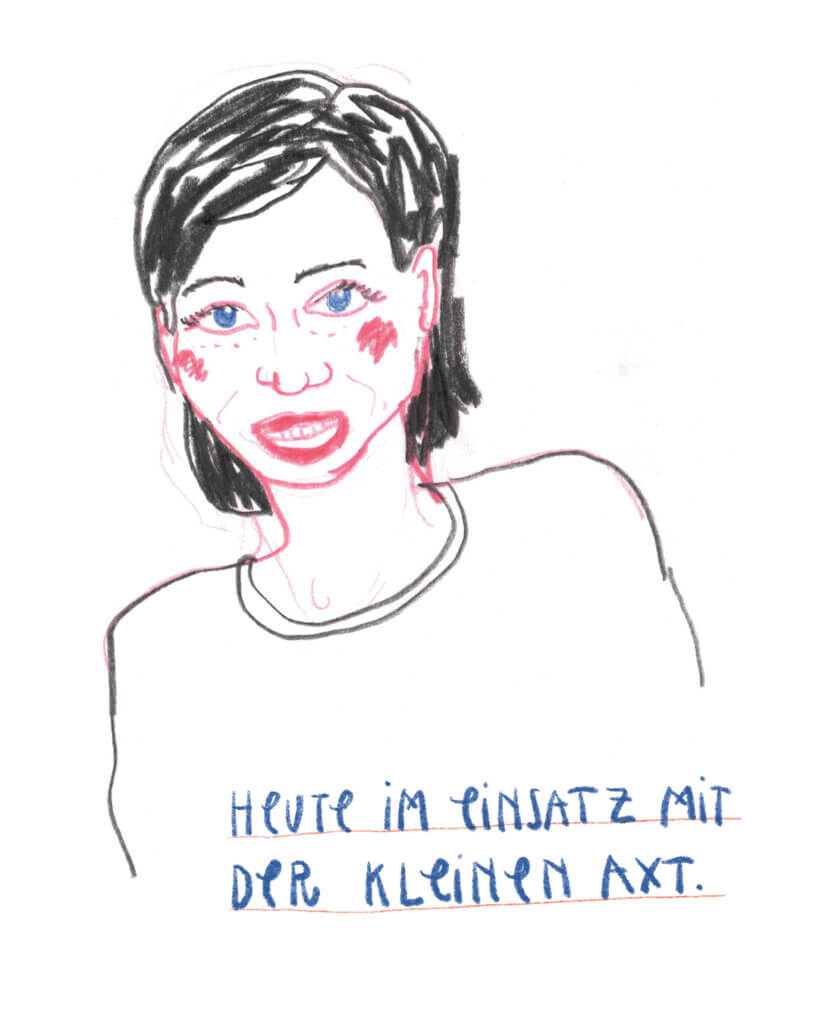 HeUTe iM eiNSATZ MiT
DeR KLeiNeN AXT.